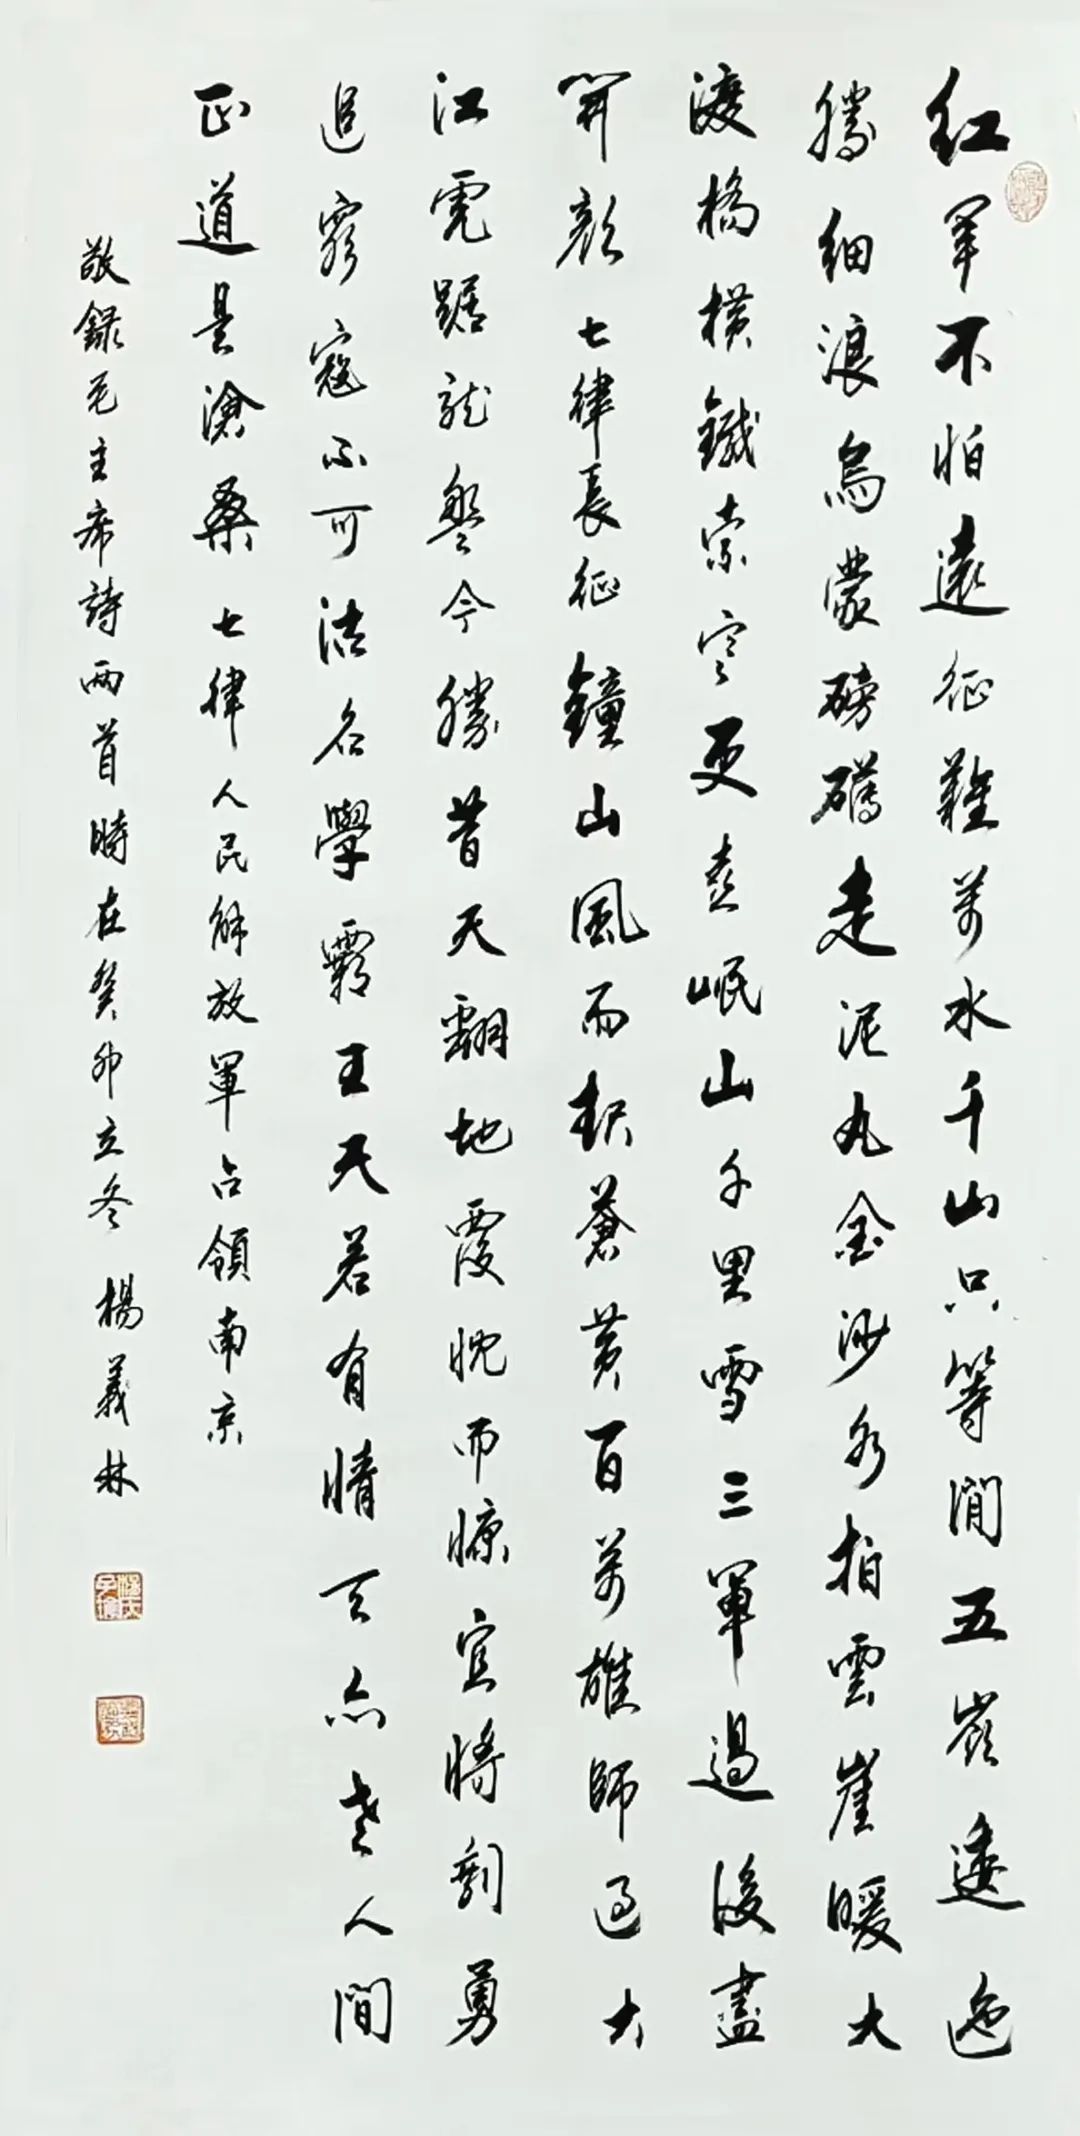 红軍不怕遠征難萬水千山只等閒五嶺逶迤
騰細浪烏蒙磅礴走泥丸金沙水拍雲崖暖大
渡橋橫鐵索寒更喜岷山千里雪三軍過後盡
開顏 七律長征 鐘山風雨起蒼黃百萬雄師過大
江虎踞龍盤今勝昔天翻地覆慨而慷宜將剩勇
追窮寇不可沽名學霸王天若有情天亦老人間
正道是滄桑 七律人民解放軍占領南京
敬錄毛主席詩兩首時在癸卯立冬 楊義林